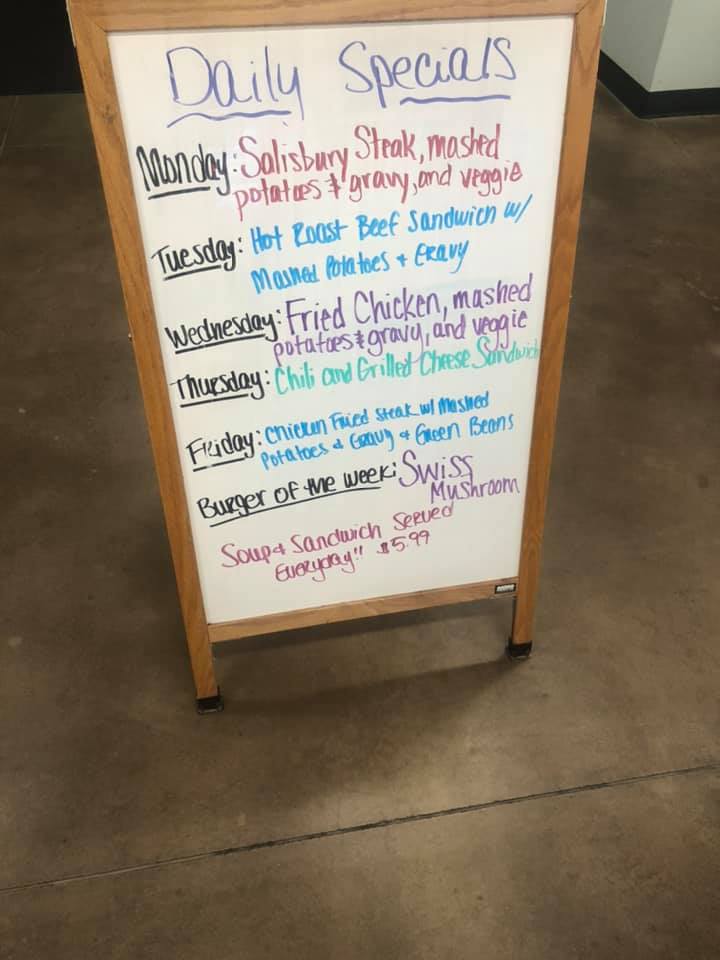 Daily Specials
Monday: Salisbury Steak, mashed
potatoes & gravy, and veggie
Tuesday: Hot Roast Beef Sandwich w/
Mashed Potatoes + Gravy
Wednesday: Fried Chicken, mashed
potatoes & gravy, and veggie
Thursday: Chili and Grilled Cheese Sandwich
Friday: Chicken Fried Steak w/ Mashed
Potatoes & Gravy & Green Beans
Burger of the week: Swiss
Mushroom
Soup & Sandwich Served
Everyday!! $5.99